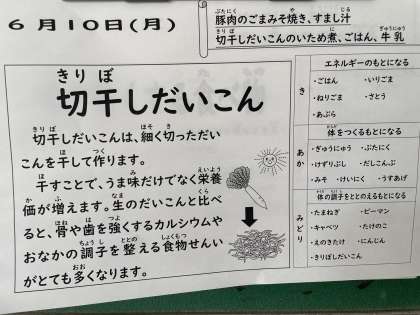 6月10日(月)
豚肉のごまみそ焼き、すまし汁
切干しだいこんのいため煮、ごはん、牛乳
切干しだいこん
切干しだいこんは、細く切っただい
こんを干して作ります。
干すことで、うま味だけでなく栄養
価が増えます。生のだいこんと比べ
ると、骨や歯を強くするカルシウムや
おなかの調子を整える食物せんい
がとても多くなります。
き
エネルギーのもとになる
・ごはん ・いりごま
・ねりごま ・さとう
・あぶら
あか
体をつくるもとになる
・ぎゅうにゅう ・ぶたにく
・けずりぶし ・だしこんぶ
・みそ ・けいにく ・うすあげ
みどり
体の調子をととのえるもとになる
・たまねぎ ・ピーマン
・キャベツ ・たけのこ
・えのきたけ ・にんじん
・きりぼしだいこん